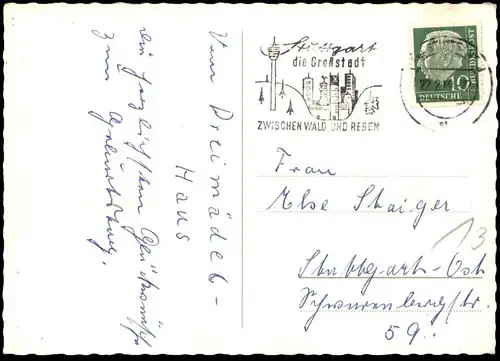 Vom Dreimädel-
Haus
die herzlichsten Glückwünsche
zum Geburtstag.
Stuttgart
die Großstadt
ZWISCHEN WALD UND REBEN
DEUTSCHE
BUNDESPOST
10
Frau
Else Staiger
Stuttgart-Ost
Schwarenbergstr.
59.
13